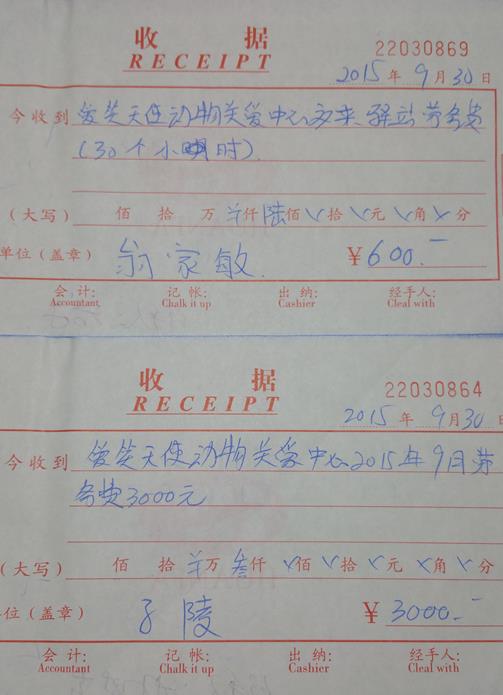 收 据
RECEIPT
22030869
2015年 9月30日
今收到 爱笑天使动物关爱中心 来驿站劳务费
(30个小时).
(大写) 佰 拾 万 仟陆佰 拾 元 角 分
单位(盖章) 翁家敏 ¥600.-
会 计: 记 帐: 出 纳: 经手人:
Accountant Chalk it up Cashier Cleal with
收 据
RECEIPT
22030864
2015年 9月30日
今收到 爱笑天使动物关爱中心2015年9月劳
务费3000元
(大写) 佰 拾 万 叁仟 佰 拾 元 角 分
位(盖章) 子陵 ¥3000.-
会 计: 记 帐: 出 纳: 经手人:
Accountant Chalk it up Cashier Cleal with